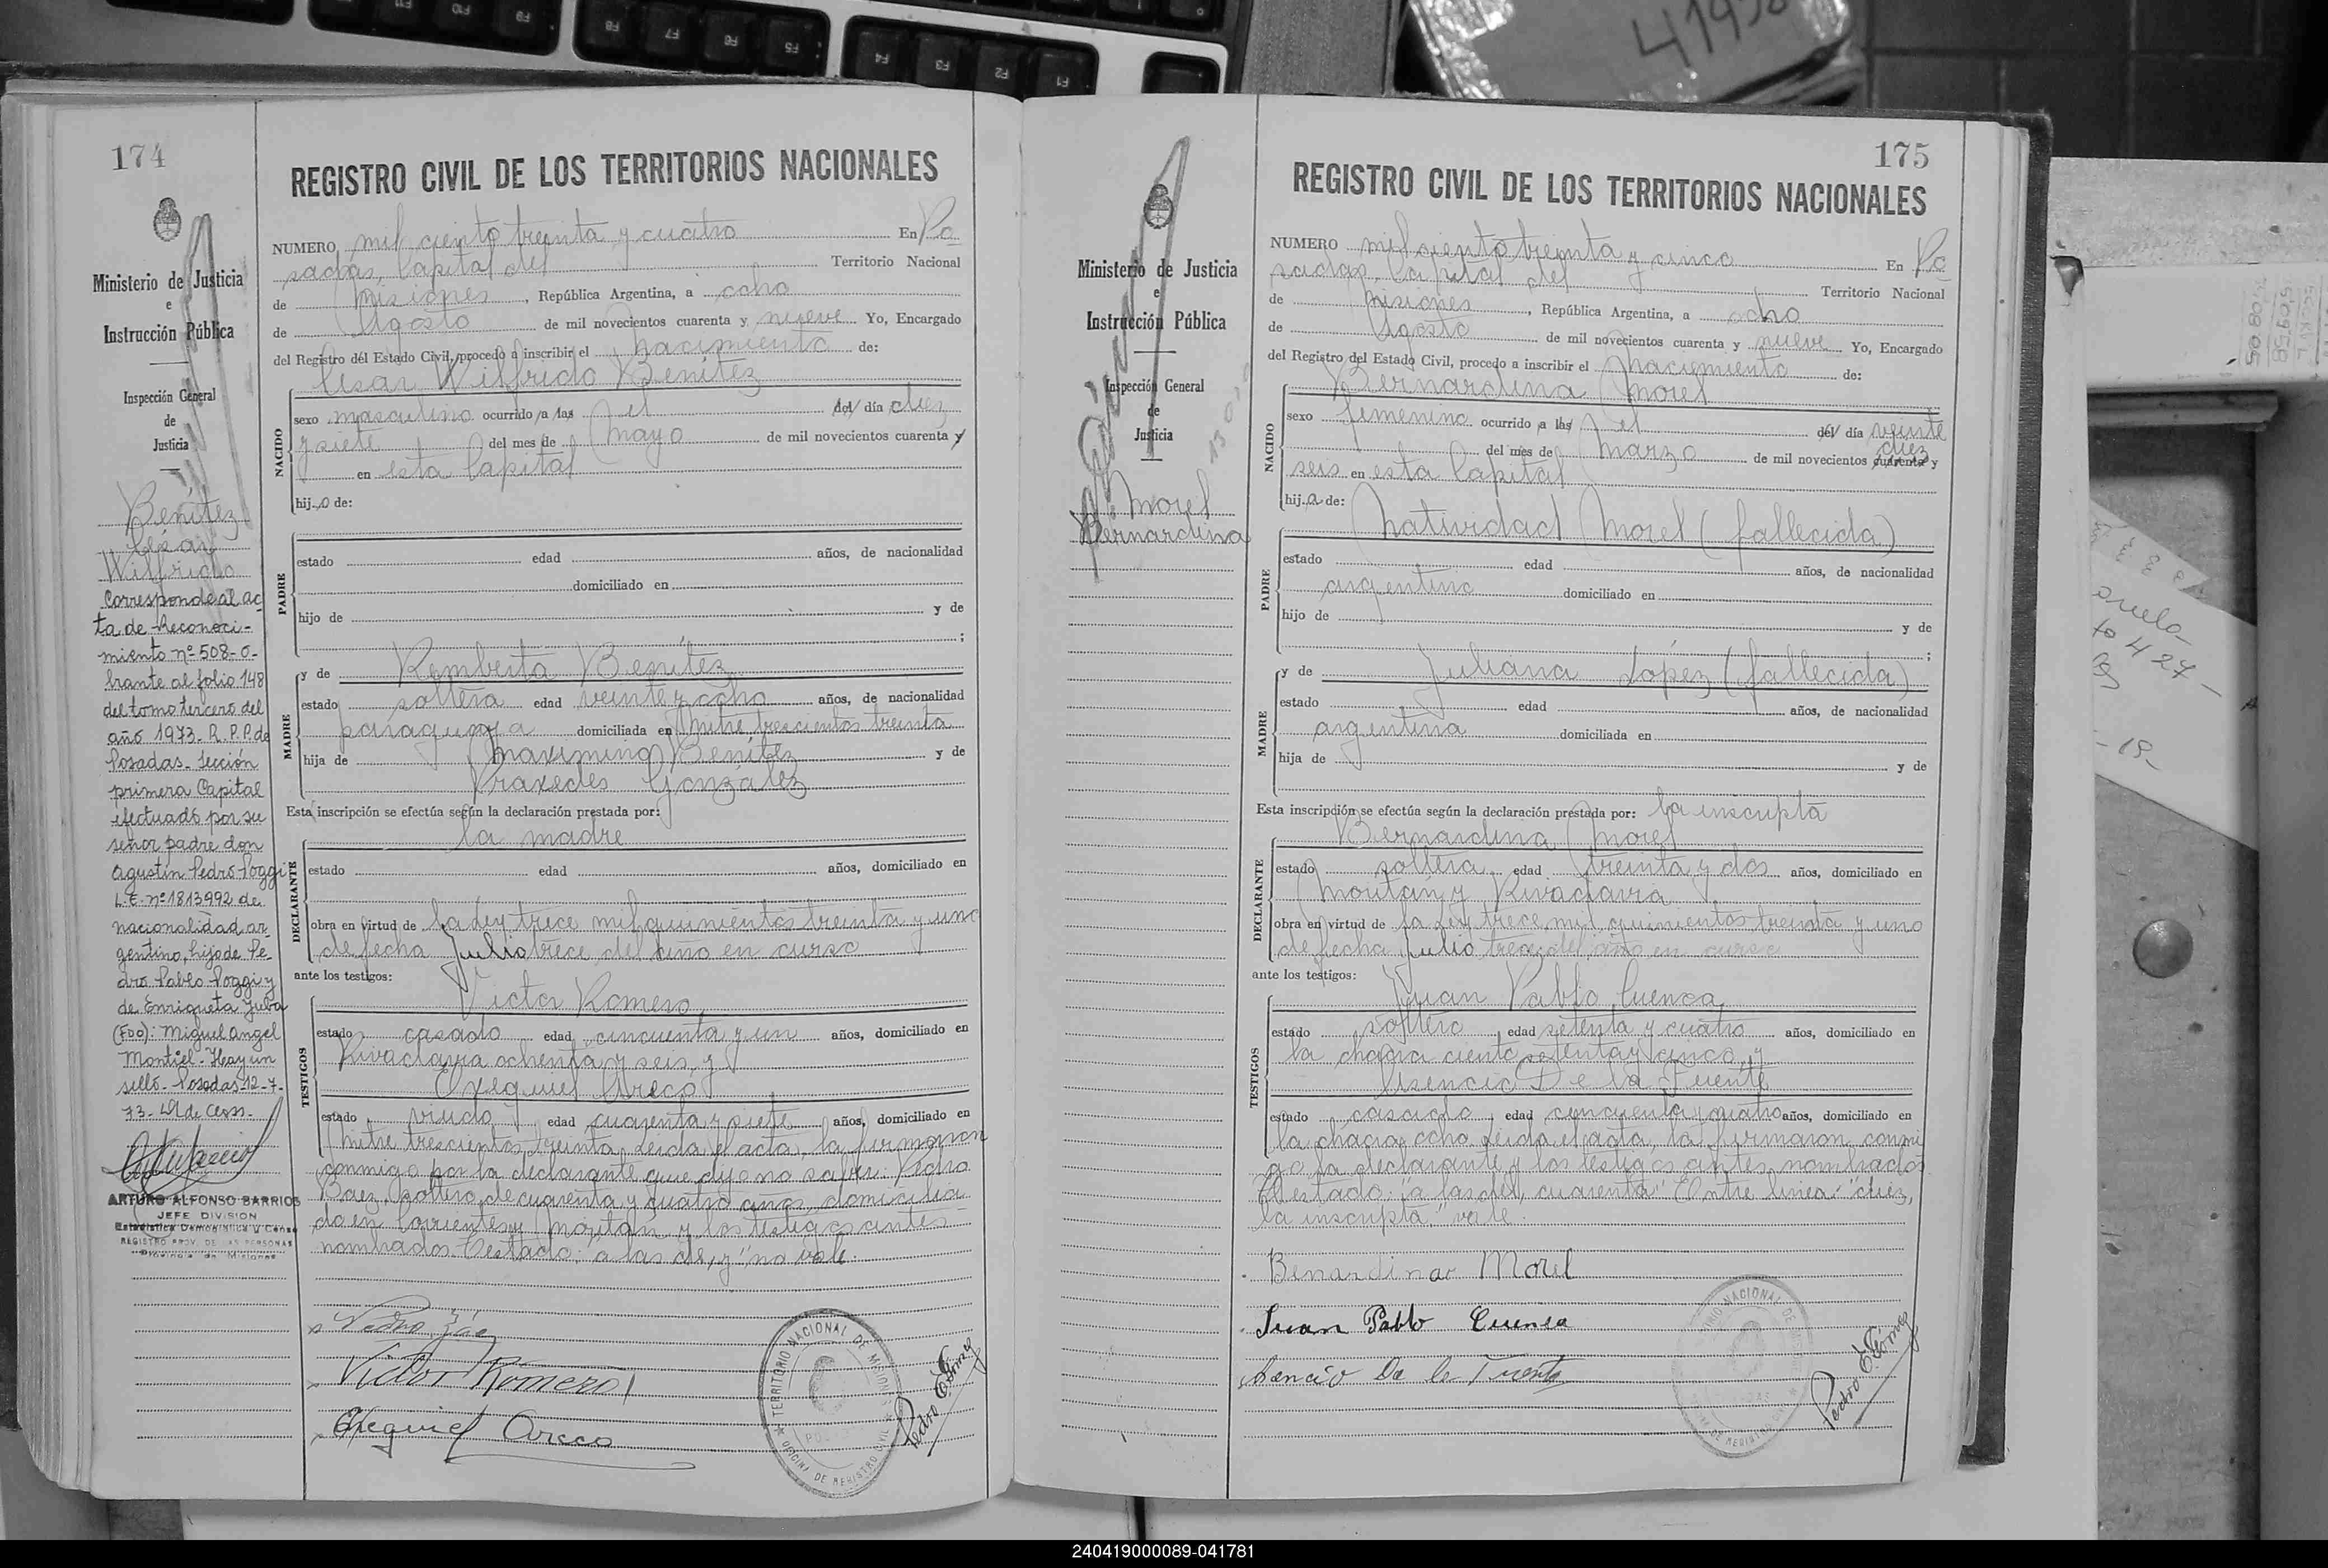 174
REGISTRO CIVIL DE LOS TERRITORIOS NACIONALES
Ministerio de Justicia
e
Instrucción Pública
Inspección General
de
Justicia
Benítez
César
Wilfrido
Corresponde al ac
ta de Reconoci-
miento nº 508-o-
brante al folio 148
del tomo tercero del
año 1973. R. P. P. de
Posadas. Sección
primera Capital
efectuado por su
señor padre don
Agustín Pedro Poggi
L.E. nº 1813992 de
nacionalidad ar-
gentino, hijo de Pe-
dro Pablo Poggi y
de Enriqueta
(Fdo): Miguel Angel
Montiel. Hay un
sello. Posadas-12-7-
73.
ARTURO ALFONSO BARRIOS
JEFE DIVISION
Estadística Demográfica y Censo
REGISTRO PROV. DE LAS PERSONAS
Provincia de Misiones
NUMERO mil ciento treinta y cuatro En Po
sadas, Capital del Territorio Nacional
de Misiones, República Argentina, a ocho
de Agosto de mil novecientos cuarenta y nueve Yo, Encargado
del Registro del Estado Civil, procedo a inscribir el nacimiento de:
Cesar Wilfrido Benítez
NACIDO
sexo masculino ocurrido a las el del día diez
y siete del mes de Mayo de mil novecientos cuarenta y
en esta Capital
hijo de:
PADRE
estado edad años, de nacionalidad
domiciliado en
hijo de y de
;
MADRE
y de Remberta Benítez
estado soltera edad veinte y ocho años, de nacionalidad
paraguaya domiciliada en Mitre trescientos treinta
hija de Maximino Benítez y de
Praxedes Gonzalez
Esta inscripción se efectúa según la declaración prestada por:
la madre
DECLARANTE
estado edad años, domiciliado en
obra en virtud de la ley trece mil quinientos treinta y uno
de fecha Julio trece del año en curso
ante los testigos:
TESTIGOS
Victor Romero,
estado casado edad cincuenta y un años, domiciliado en
Rivadavia ochenta y seis, y
Exequiel Areco
estado viudo edad cuarenta y siete años, domiciliado en
Mitre trescientos treinta. Leida el acta, la firmaron
conmigo por la declarante que dijo no saber: Pedro
Baez, soltero, de cuarenta y cuatro años, domicilia
do en Corrientes y Moritan y los testigos antes
nombrados. Testado: "a las del, y" no vale.
Victor Romero
Exequiel Areco
TERRITORIO NACIONAL DE MISIONES
OFICINA DE REGISTRO CIVIL
Pedro E. Gómez
175
REGISTRO CIVIL DE LOS TERRITORIOS NACIONALES
Ministerio de Justicia
e
Instrucción Pública
Inspección General
de
Justicia
Morel
Bernardina
NUMERO mil ciento treinta y cinco En Po
sadas, Capital del Territorio Nacional
de Misiones, República Argentina, a ocho
de Agosto de mil novecientos cuarenta y nueve Yo, Encargado
del Registro del Estado Civil, procedo a inscribir el nacimiento de:
Bernardina Morel
NACIDO
sexo femenino ocurrido a las el del día veinte
del mes de Marzo de mil novecientos diez cuarenta y
seis en esta Capital
hija de:
PADRE
Natividad Morel (fallecida)
estado edad años, de nacionalidad
argentino domiciliado en
hijo de y de
;
MADRE
y de Juliana López (fallecida)
estado edad años, de nacionalidad
argentina domiciliada en
hija de y de
Esta inscripción se efectúa según la declaración prestada por: la inscripta
DECLARANTE
Bernardina Morel
estado soltera edad treinta y dos años, domiciliado en
Moritan y Rivadavia
obra en virtud de la ley trece mil quinientos treinta y uno
de fecha Julio trece del año en curso
ante los testigos:
TESTIGOS
Juan Pablo Cuenca
estado soltero edad setenta y cuatro años, domiciliado en
la chacra ciento setenta y cinco, y
De la Fuente
estado casado edad cincuenta y cuatro años, domiciliado en
la chacra ocho. Leida el acta, la firmaron conmi
go la declarante y los testigos antes nombrados.
Testado: "a las del, cuarenta" Entre linea: "diez,
la inscripta," vale.
Benardina Morel
Juan Pablo Cuenca
De la Fuente
Pedro E. Gómez
240419000089-041781